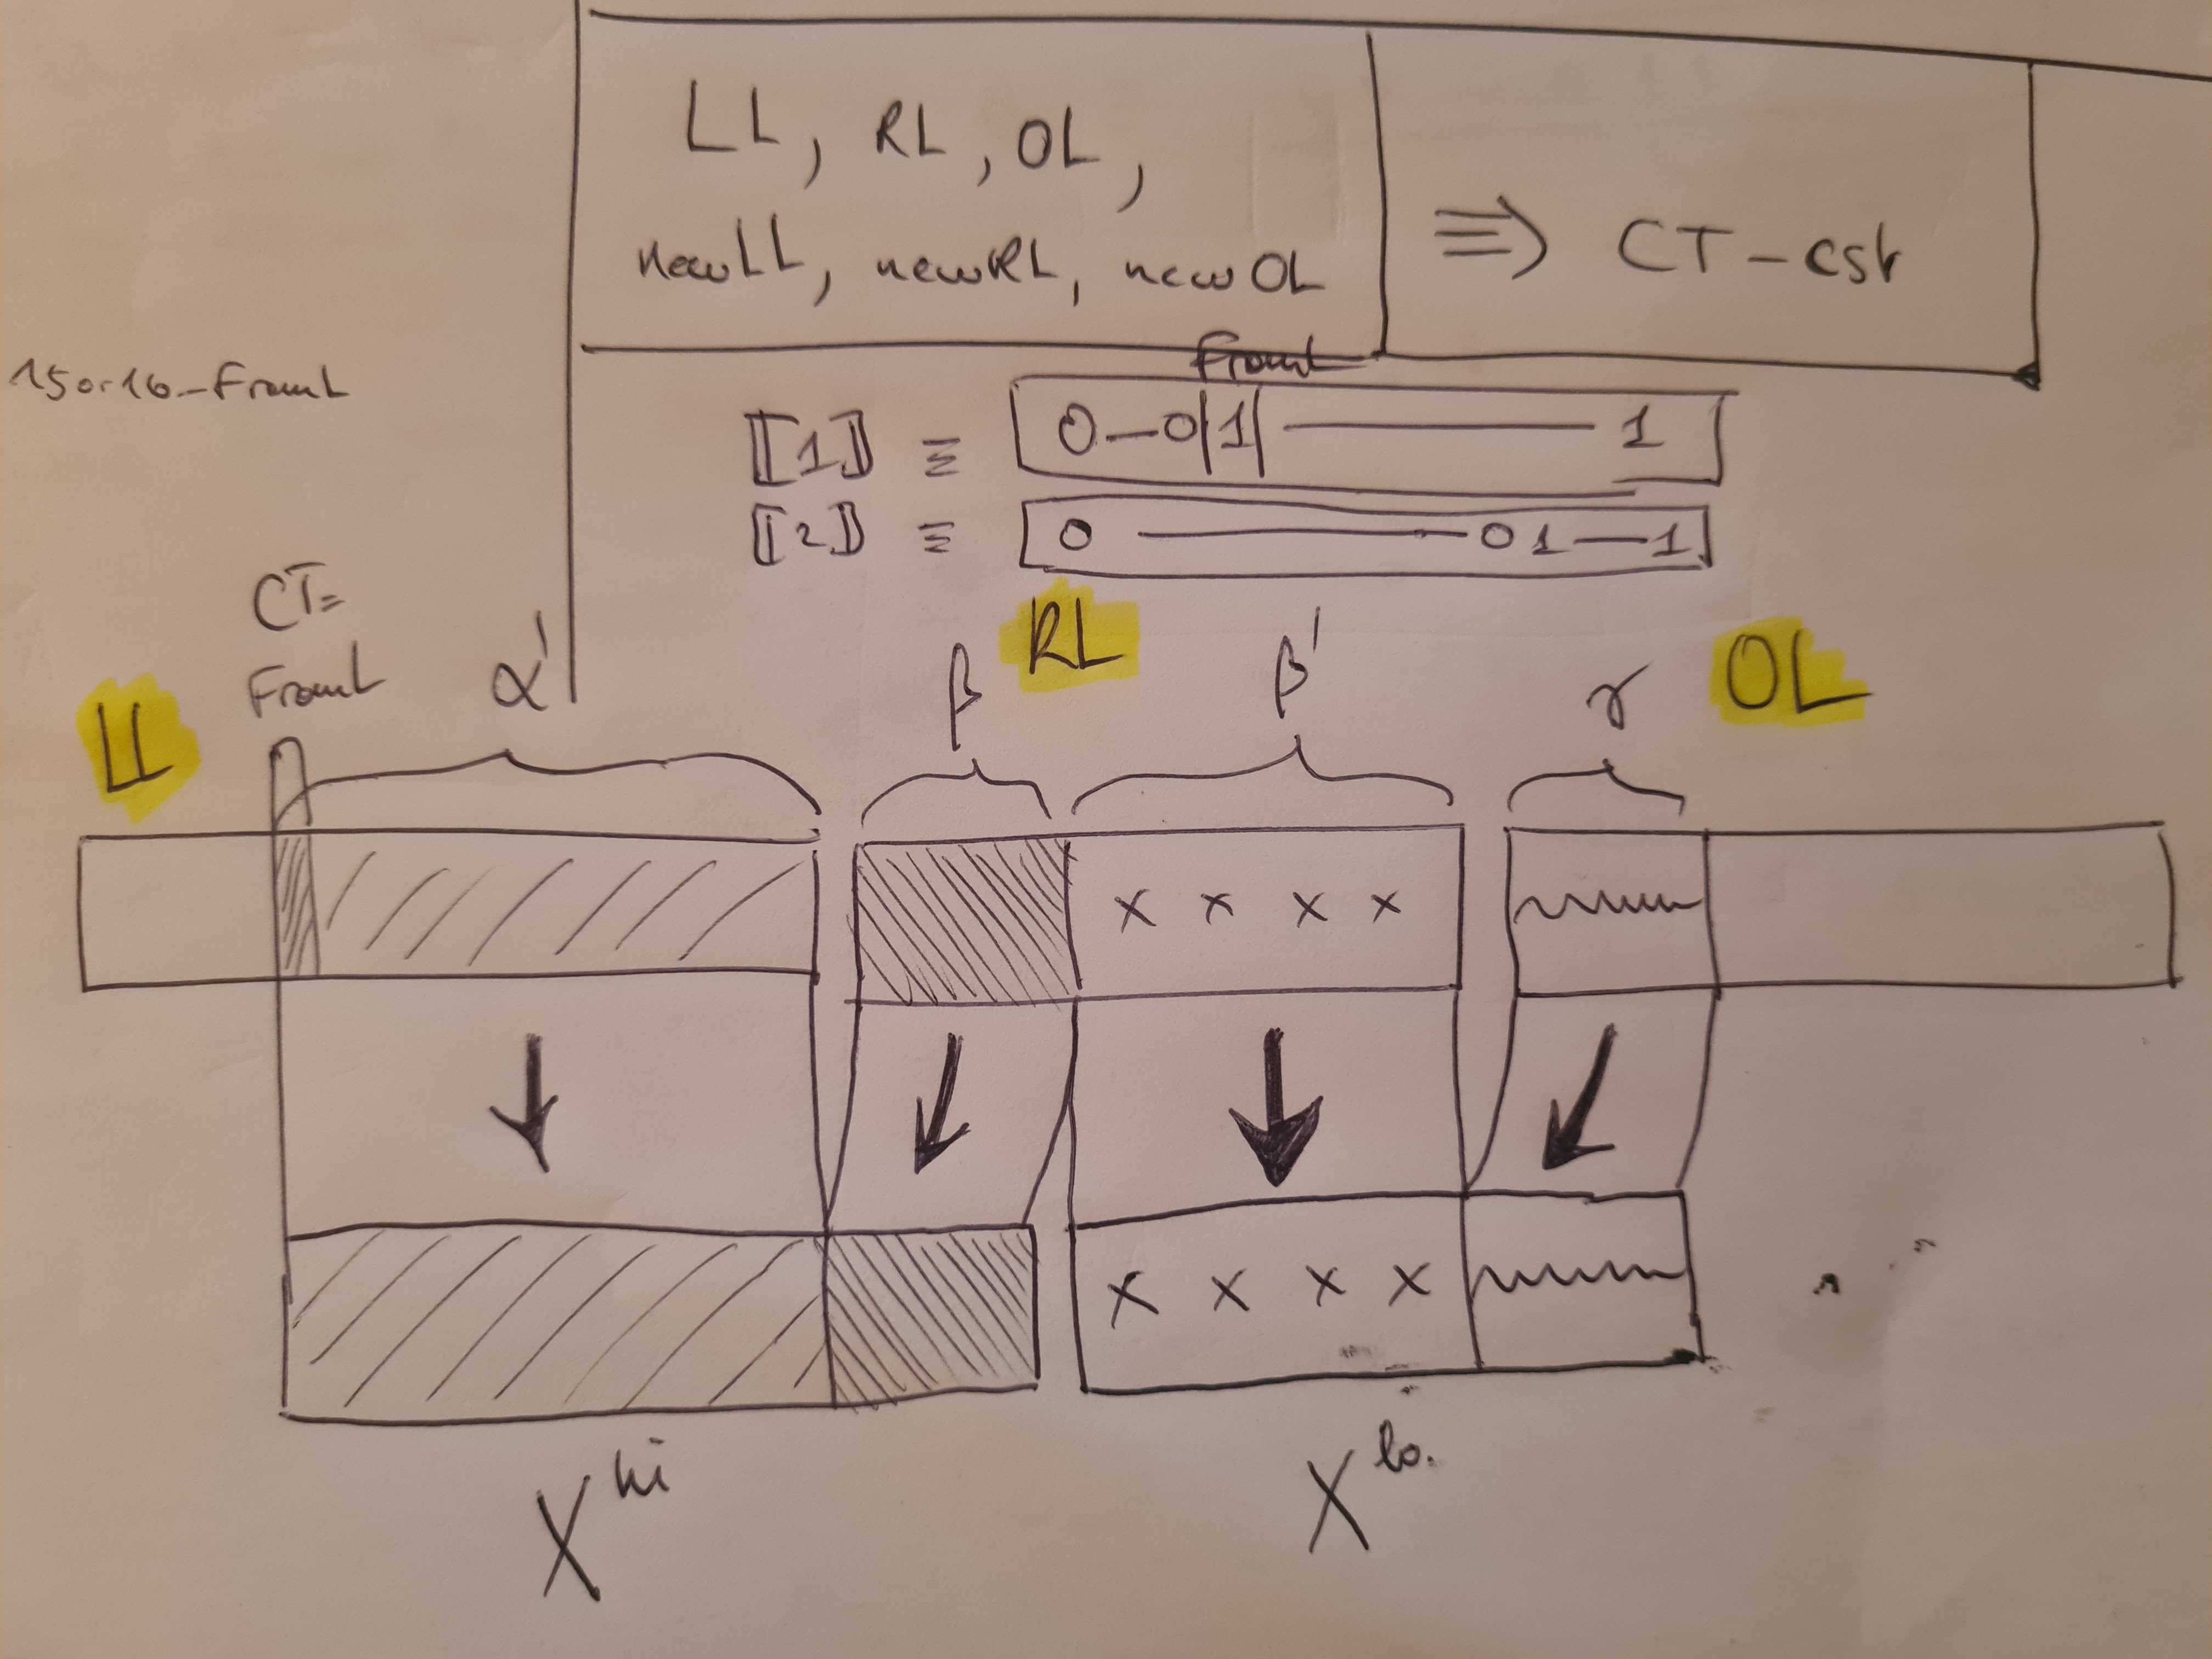 LL, RL, OL,
newLL, newRL, newOL
⇒ CT-cst
Fromt
15or16-Fromt
⟦1⟧ ≡ 0—0|1|—1
⟦2⟧ ≡ 0—01—1
CT=
Fromt
LL α' β RL β' γ OL
x x x x
x x x x
X^hi X^lo.